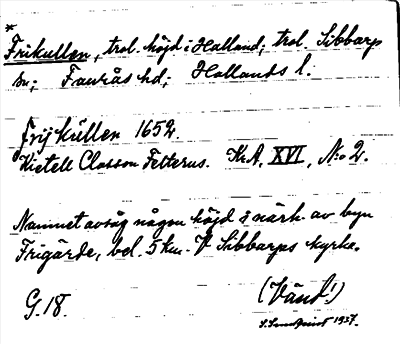 *
Frikullen, trol. höjd i Halland; trol. Sibbarp
sn; Faurås hd; Hallands l.
Frijkullen 1652.
Kietell Classon Felterus. Kr.A, XVI, N:o 2.
Namnet avsåg någon höjd i närh. av byn
Frigärde, bel. 5 km. V Sibbarps kyrka.
G. 18. (Vänd!)
1937.